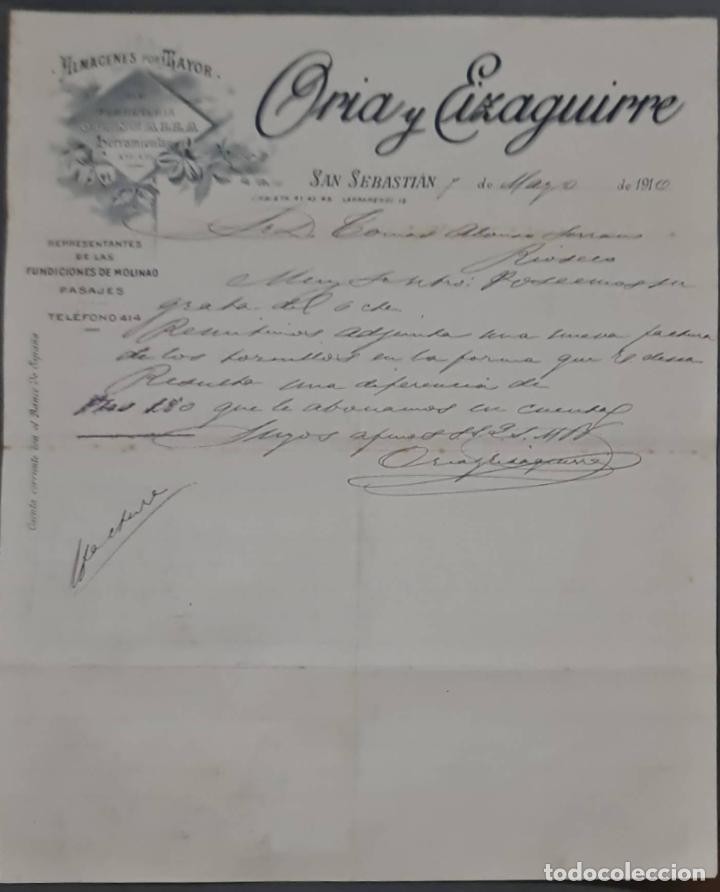 ALMACENES POR MAYOR
DE
FERRETERIA
QUINCALLA
Herramientas
Oria y Eizaguirre
SAN SEBASTIÁN 7 de Mayo de 1910
LARRAMENDI 12
REPRESENTANTES
DE LAS
FUNDICIONES DE MOLINAO
PASAJES
TELÉFONO 414
Cuenta corriente con el Banco de España
Sr. D. Tomás Alonso Serrano
Rioseco
Muy Sr. ntro: Poseemos su
grata del 6 cte.
Remitimos adjunta una nueva factura
de los tornillos en la forma que desea
Resulta una diferencia de
Ptas 1.80 que le abonamos en cuenta
Suyos afmos S.S. Q.B.S.M.
Oria y Eizaguirre
factura
todocoleccion
todocoleccion.net